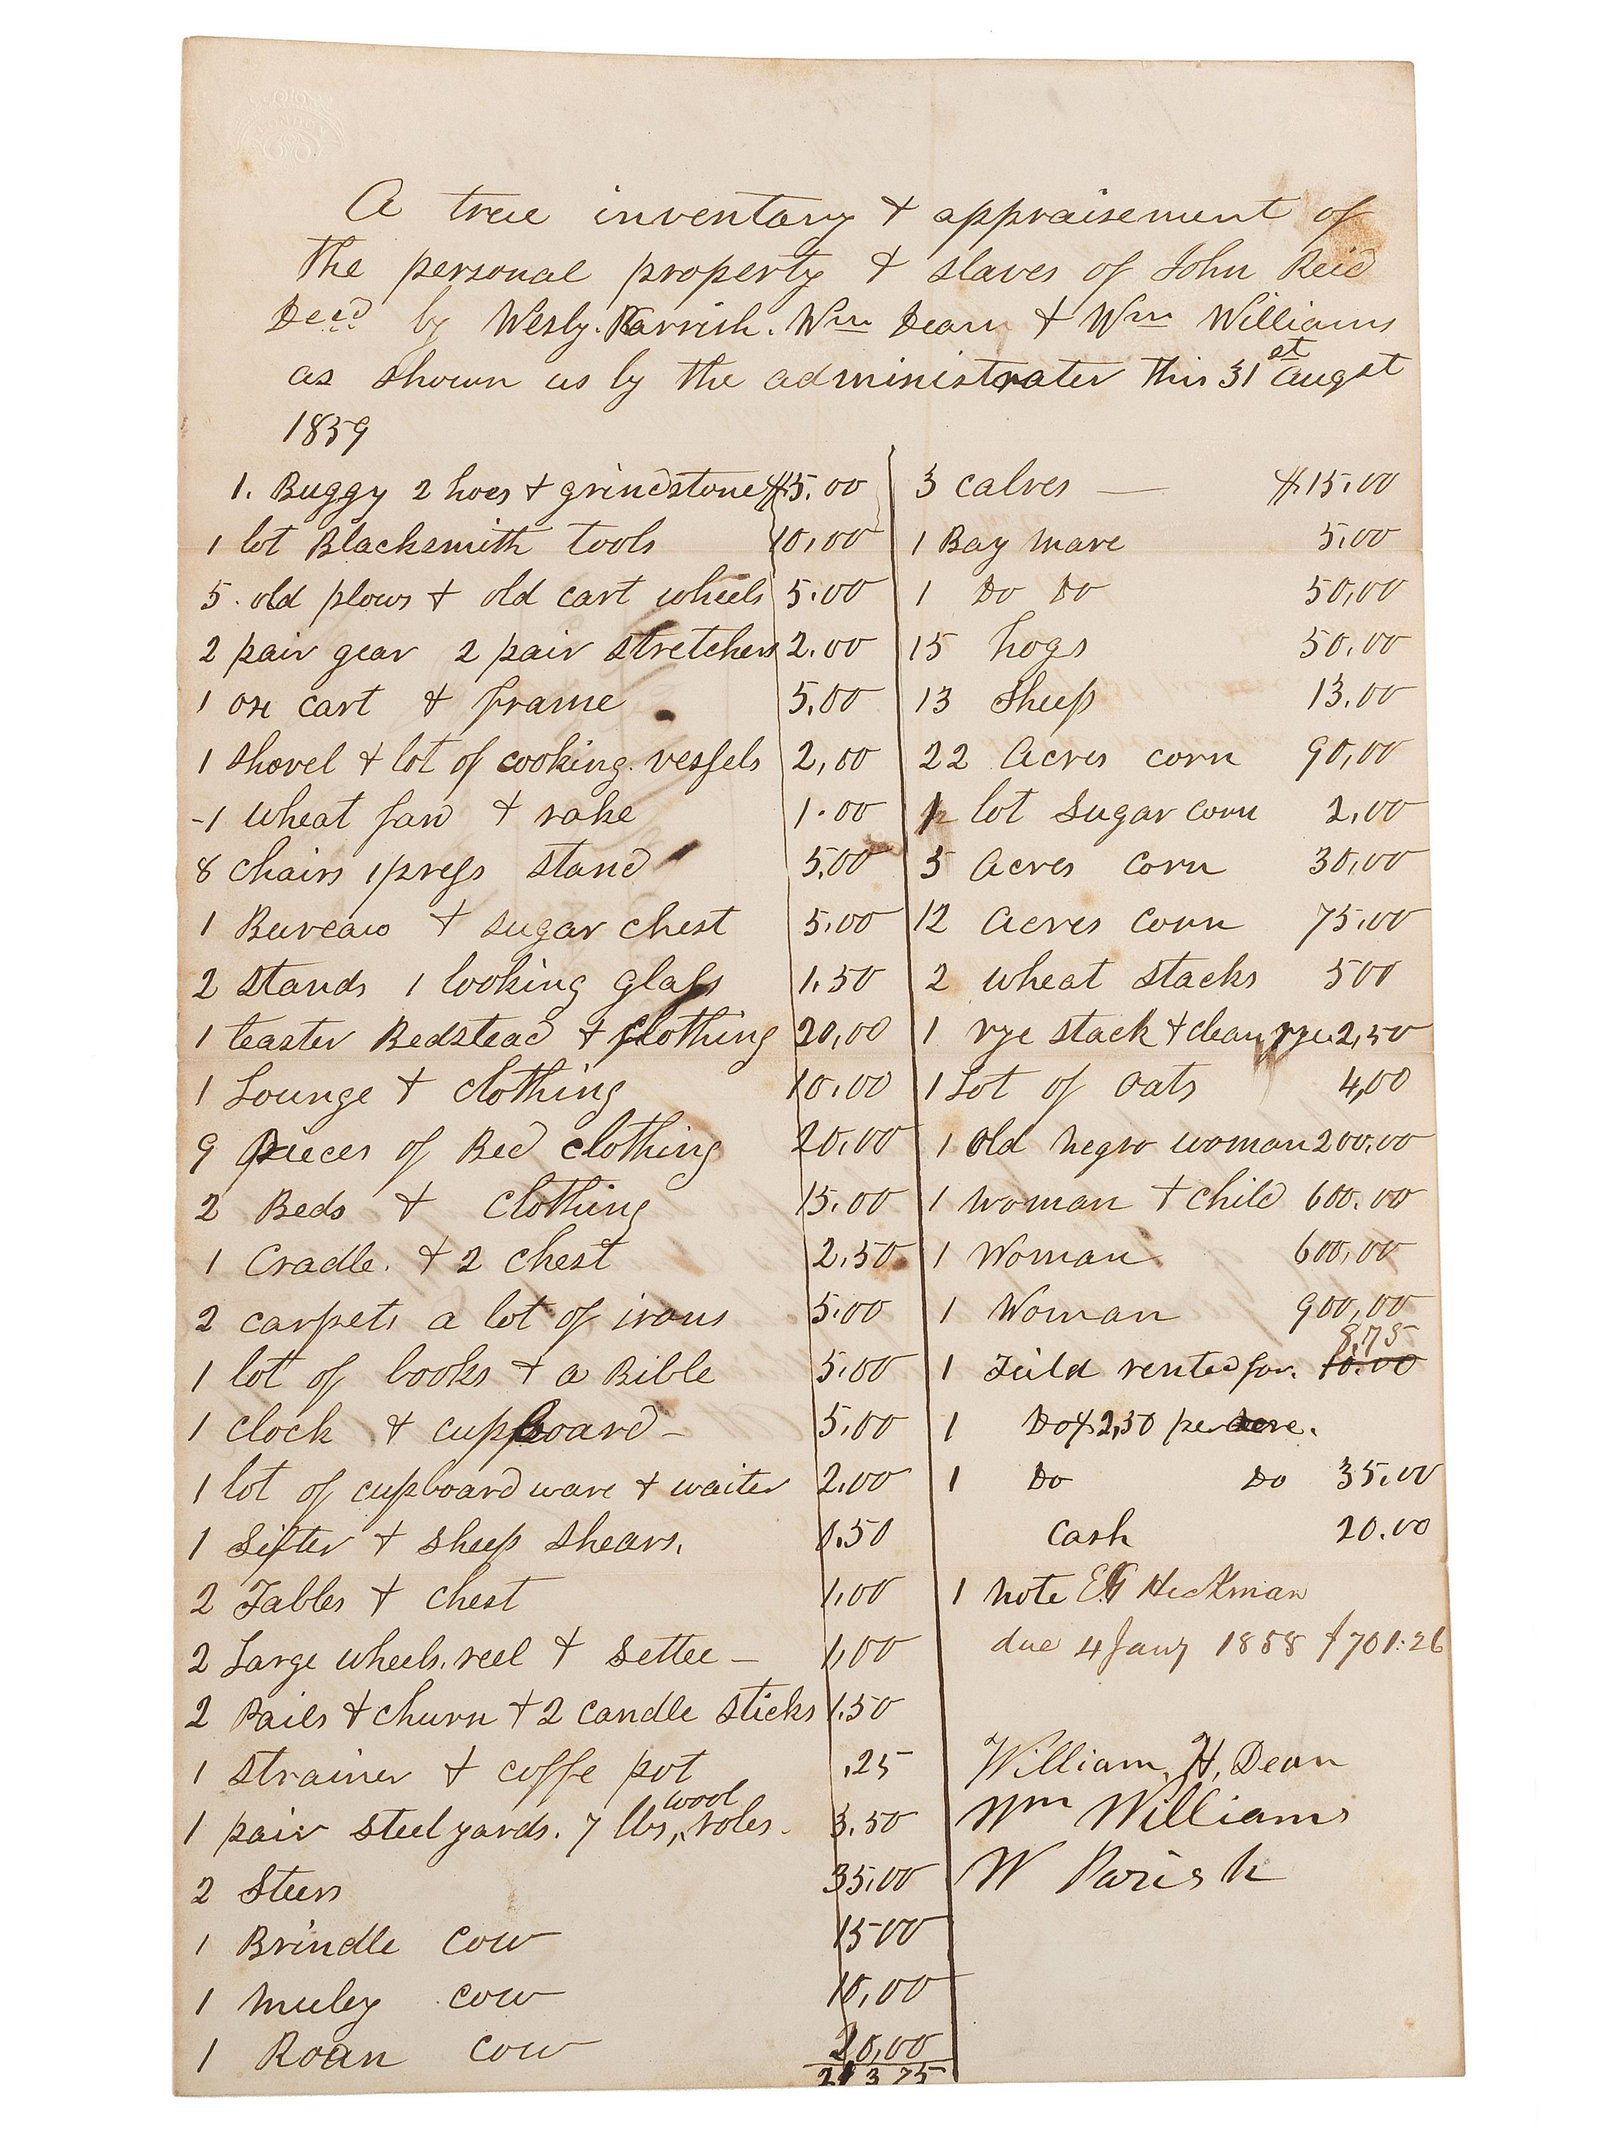 LONDON
A true inventory & appraisement of
the personal property & slaves of John Reid
Decd by Wesly. Parrish. Wm Dean & Wm Williams
as shown us by the administrater this 31st augst
1859
1. Buggy 2 hoes & grindstone $5.00
1 lot Blacksmith tools 10,00
5. old plows & old cart wheels 5.00
2 pair gear 2 pair stretchers 2.00
1 ox cart & frame 5,00
1 shovel & lot of cooking vessels 2,00
1 wheat fan & rake 1.00
8 chairs 1 press stand 5,00
1 Bureau & sugar chest 5,00
2 stands 1 looking glass 1.50
1 teaster Bedstead & clothing 20,00
1 Lounge & clothing 10.00
9 pieces of Bed clothing 20.00
2 Beds & clothing 15.00
1 Cradle. & 2 chest 2.50
2 carpets a lot of irons 5.00
1 lot of books & a Bible 5.00
1 clock & cupboard - 5.00
1 lot of cupboard ware & waiter 2.00
1 Sifter & sheep shears. 0.50
2 Tables & chest 1.00
2 Large wheels. reel & settee - 1,00
2 Pails & churn & 2 candle sticks 1.50
1 strainer & coffe pot .25
1 pair steelyards. 7 lbs, wool roles. 3.50
2 Steers 35.00
1 Brindle cow 15 00
1 muley cow 10,00
1 Roan cow 20,00
213 75
3 calves — $15.00
1 Bay mare 5.00
1 Do Do 50,00
15 hogs 50.00
13 Sheep 13.00
22 Acres corn 90,00
1 lot sugar corn 2,00
5 Acres corn 30,00
12 acres corn 75.00
2 wheat stacks 500
1 rye stack & clean rye 2,50
1 Lot of oats 4,00
1 old negro woman 200.00
1 woman & child 600.00
1 Woman 600,00
1 Woman 900,00
1 Field rented for. 10.00 8,75
1 Do $2,50 per acre.
1 Do Do 35.00
Cash 20.00
1 note Hickman
due 4 Jany 1858 $701.26
William, H, Dean
Wm Williams
W Parish